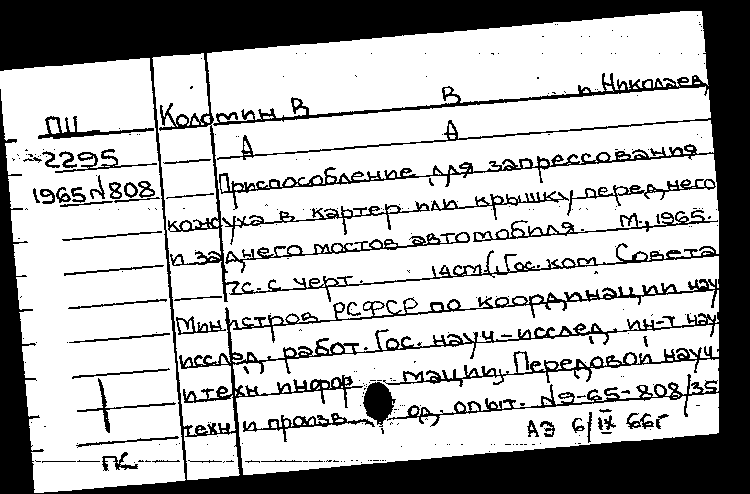 ПII Колотин, В В и Николаев,
2295 А А
1965 N808 Приспособление для запрессования
кожуха в картер или крышку переднего
и заднего мостов автомобиля. М., 1965.
7с. с черт. 14см (Гос. ком. Совета
Министров РСФСР по координации науч
исслед. работ. Гос. науч-исслед. ин-т науч
и техн. информации. Передовой науч
техн и произв. опыт. N9-65-808/35
АЭ 6/IX 66г
ПК